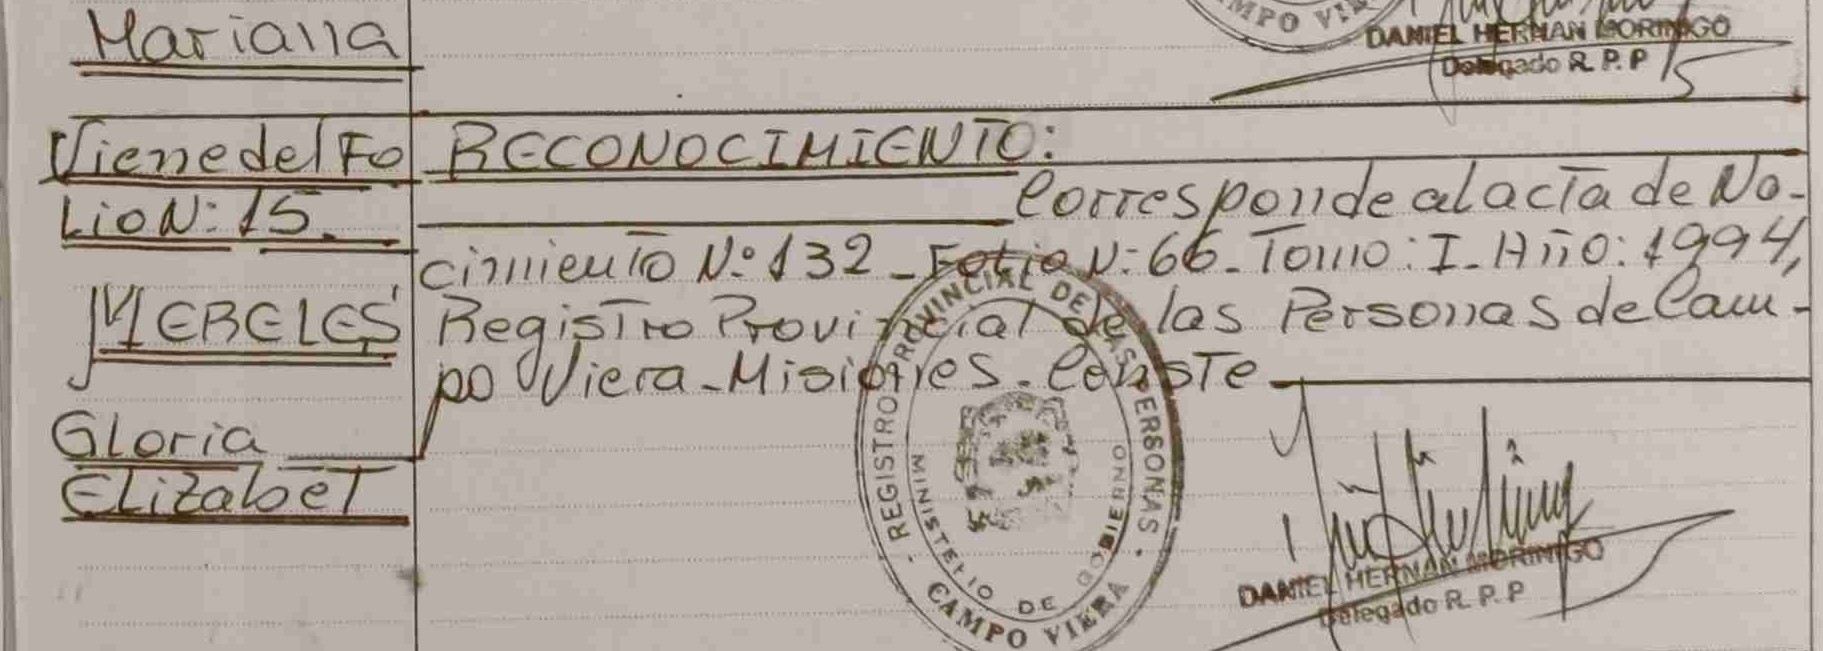 Mariana
CAMPO VIE
DANIEL HERNAN MORINIGO
Delegado R. P. P
Viene del Fo
Lio N: 15.
MERELES
Gloria
Elizabet
RECONOCIMIENTO:
Corresponde al acta de Na-
cimiento N.º 132 - Folio N: 66 - Tomo: I - Año: 1994,
Registro Provincial de las Personas de Cam-
po Viera - Misiones. Conste
REGISTRO PROVINCIAL DE LAS PERSONAS
MINISTERIO DE GOBIERNO
CAMPO VIERA
DANIEL HERNAN MORINIGO
Delegado R. P. P